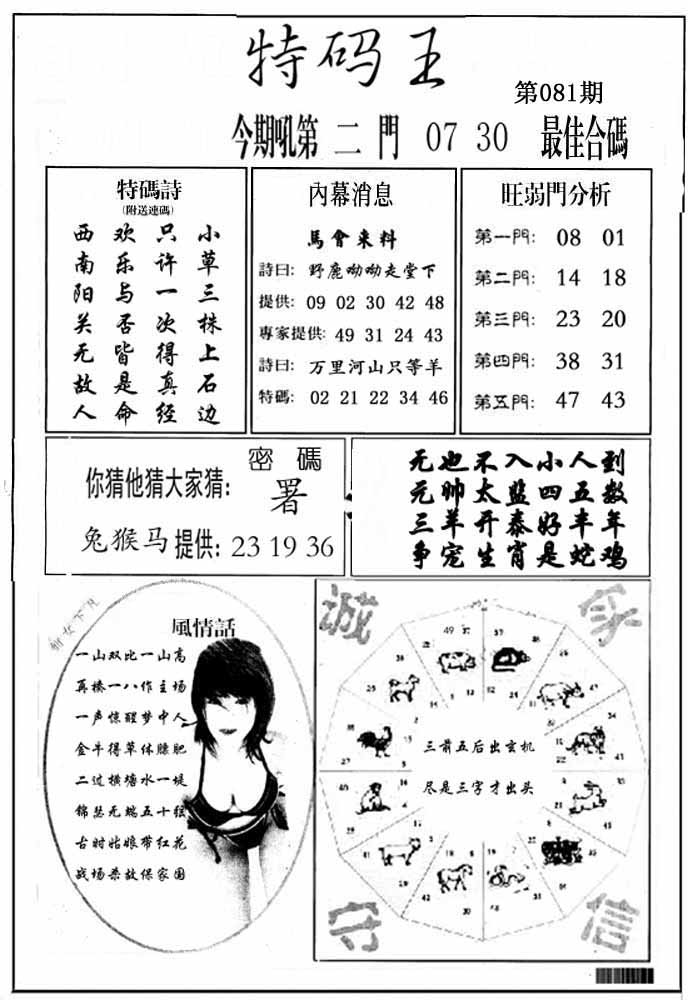 特码王
第081期
今期吼第 二 門 07 30 最佳合碼
特碼詩
(附送連碼)
小草三株上石边
只许一次得真经
欢乐与否皆是命
西南阳关无故人
內幕消息
馬會来料
詩曰: 野鹿呦呦走堂下
提供: 09 02 30 42 48
專家提供: 49 31 24 43
詩曰: 万里河山只等羊
特碼: 02 21 22 34 46
旺弱門分析
第一門: 08 01
第二門: 14 18
第三門: 23 20
第四門: 38 31
第五門: 47 43
密碼
你猜他猜大家猜: 署
兔猴马 提供: 23 19 36
无也不入小人到
元帅太监四五数
三羊开泰好丰年
争宠生肖是蛇鸡
仙女下凡
風情話
一山双比一山高
再榛一八作主场
一声惊醒梦中人
金牛得草体膘肥
二过横塘水一堤
锦瑟无端五十弦
古时姑娘带红花
战场杀敌保家国
诚
信
三前五后出玄机
尽是三字才出头
守